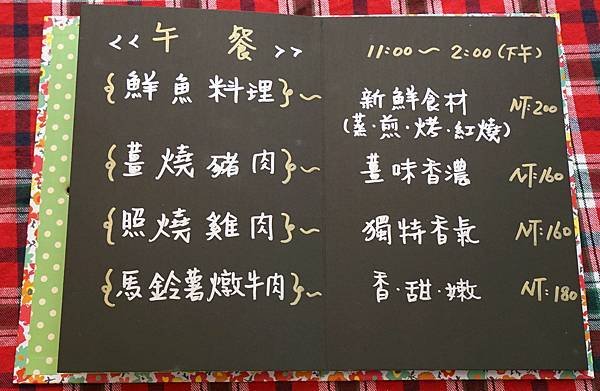 <<午餐>> 11:00～2:00(下午)
{鮮魚料理}～ 新鮮食材 NT:200
(蒸·煎·烤·紅燒)
{薑燒豬肉}～ 薑味香濃 NT:160
{照燒雞肉}～ 獨特香氣 NT:160
{馬鈴薯燉牛肉}～ 香·甜·嫩 NT:180